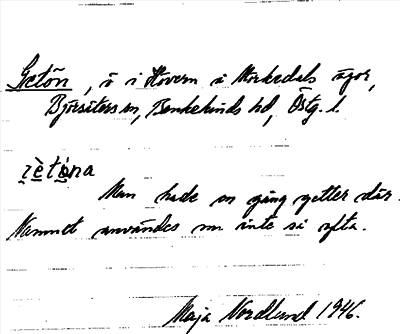 Getön, ö i Hövern i Yxnekedals ägor,
Björsäters sn, Bankekinds hd, Östg. l.
Man hade en gång getter där.
Namnet användes nu inte så ofta.
Maja Nordlund 1946.